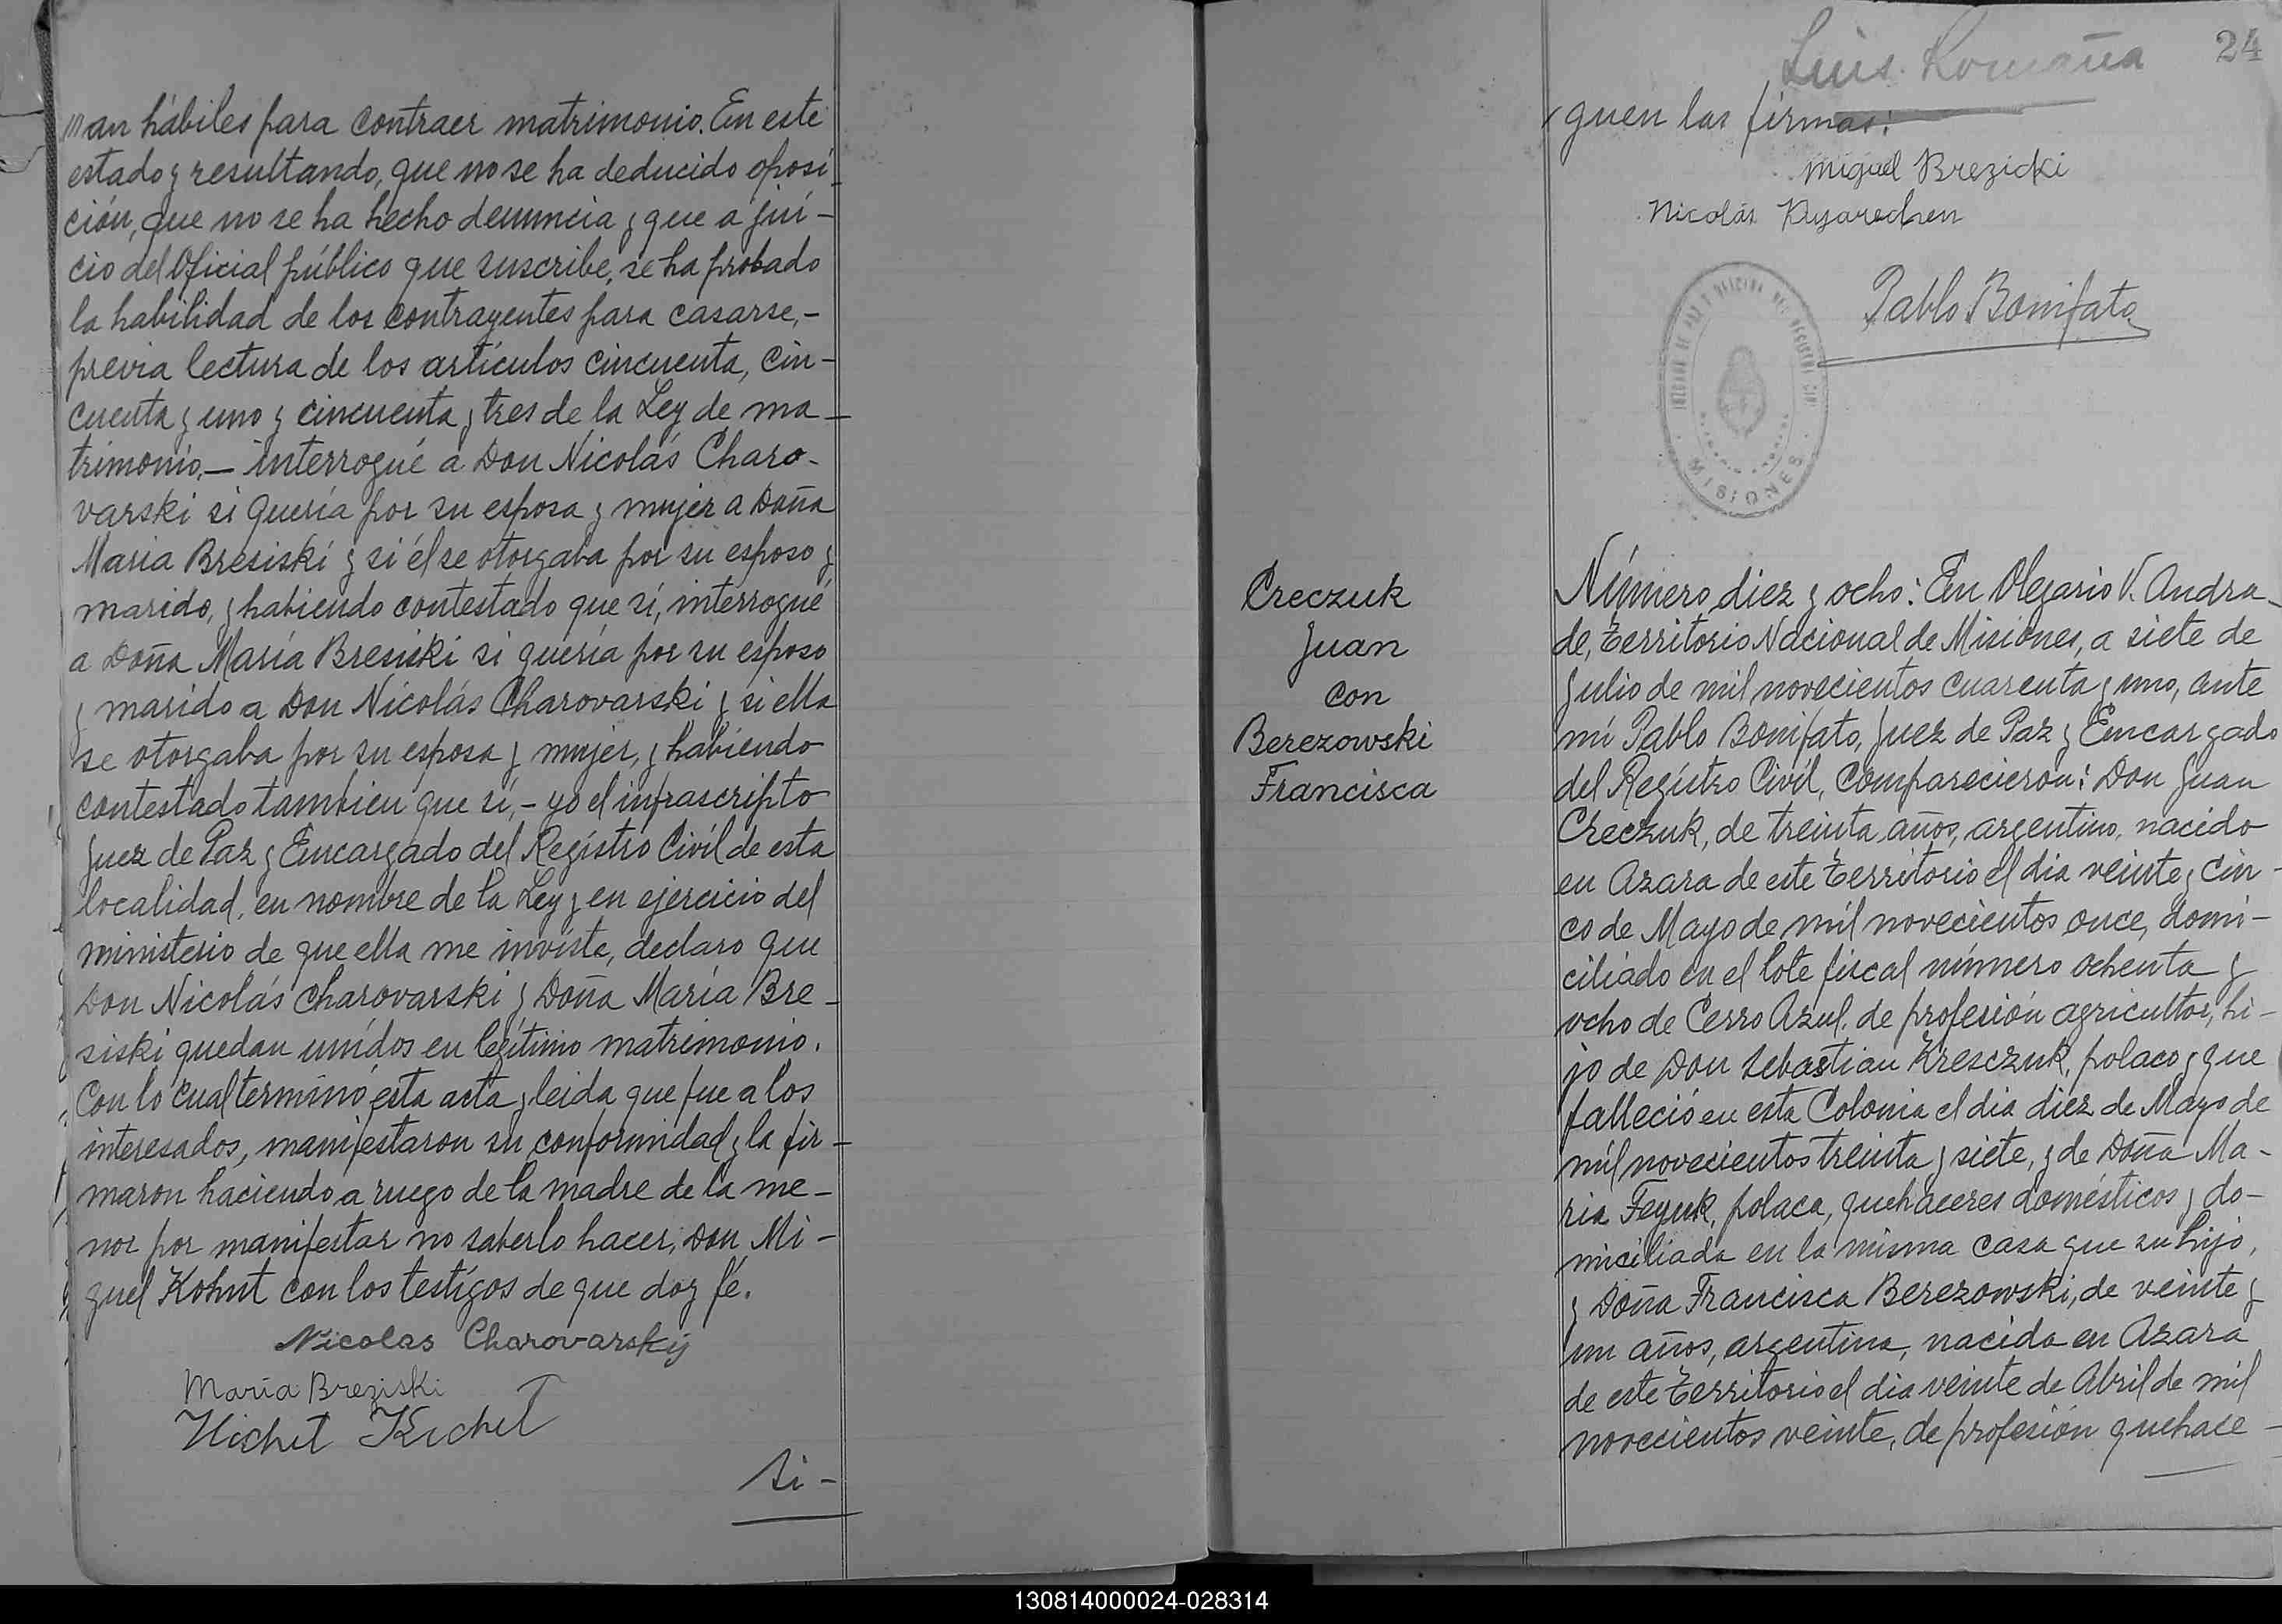 an hábiles para contraer matrimonio. En este
estado y resultando, que no se ha deducido oposi-
ción, que no se ha hecho denuncia y que a jui-
cio del Oficial público que suscribe, se ha probado
la habilidad de los contrayentes para casarse,-
previa lectura de los artículos cincuenta, cin-
cuenta y uno y cincuenta y tres de la Ley de ma-
trimonio,- interrogué a Don Nicolás Charo-
varski si quería por su esposa y mujer a Doña
Maria Bresiski y si él se otorgaba por su esposo y
marido, y habiendo contestado que sí, interrogué
a Doña María Bresiski si quería por su esposo
y marido a Don Nicolás Charovarski y si ella
se otorgaba por su esposa y mujer, y habiendo
contestado tambien que sí,- yo el infrascripto
Juez de Paz y Encargado del Registro Civil de esta
localidad, en nombre de la Ley y en ejercicio del
ministerio de que ella me inviste, declaro que
Don Nicolás Charovarski y Doña María Bre-
siski quedan unidos en legítimo matrimonio.
Con lo cual terminó esta acta y leida que fue a los
interesados, manifestaron su conformidad y la fir-
maron haciendo a ruego de la madre de la me-
nor por manifestar no saberlo hacer, Don Mi-
guel Kohut con los testigos de que doy fé.
Nicolas Charovarskij
María Breziski
Si-
24
Luis Romaña
guen las firmas:
Miguel Brezicki
Nicolás
Pablo Bonifato
MISIONES
Creczuk
Juan
con
Berezowski
Francisca
Número diez y ocho: En Olegario V. Andra-
de, Territorio Nacional de Misiones, a siete de
Julio de mil novecientos cuarenta y uno, ante
mí Pablo Bonifato, Juez de Paz y Encargado
del Registro Civil, comparecieron: Don Juan
Creczuk, de treinta años, argentino, nacido
en Azara de este Territorio el dia veinte y cin-
co de Mayo de mil novecientos once, domi-
ciliado en el lote fiscal número ochenta y
ocho de Cerro Azul, de profesión agricultor, hi-
jo de Don Sebastian Kresczuk, polaco y que
falleció en esta Colonia el dia diez de Mayo de
mil novecientos treinta y siete, y de Doña Ma-
ria Feyuk, polaca, quehaceres domésticos y do-
miciliada en la misma casa que su hijo,
y Doña Francisca Berezowski, de veinte y
un años, argentina, nacida en Azara
de este Territorio el dia veinte de Abril de mil
novecientos veinte, de profesión quehace-
130814000024-028314